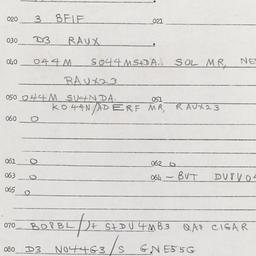 020 3 BFIF 021
030 D3 RAUX
040 044M 5044MSDA. SOL MR, NE
RAUX23
050 044M SU4NDA. 051
K044N/ADERF MR, RAUX23
060 0
061 0 062 0
063 0 064 - BUT
065 0
070 QAP CIGAR
080 D3 NO44G3/S GNE55G